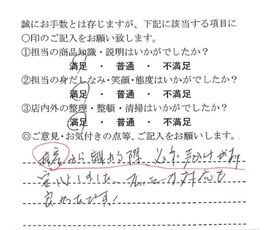 誠にお手数とは存じますが、下記に該当する項目に
〇印のご記入をお願い致します。
①担当の商品知識・説明はいかがでしたか?
満足 ・ 普通 ・ 不満足
②担当の身だしなみ・笑顔・態度はいかがでしたか?
満足 ・ 普通 ・ 不満足
③店内外の整理・整頓・清掃はいかがでしたか?
満足 ・ 普通 ・ 不満足
◎ご意見・お気付きの点等、ご記入をお願いします。
から離れる際 必ず 声かけ
対応も
良かったです!